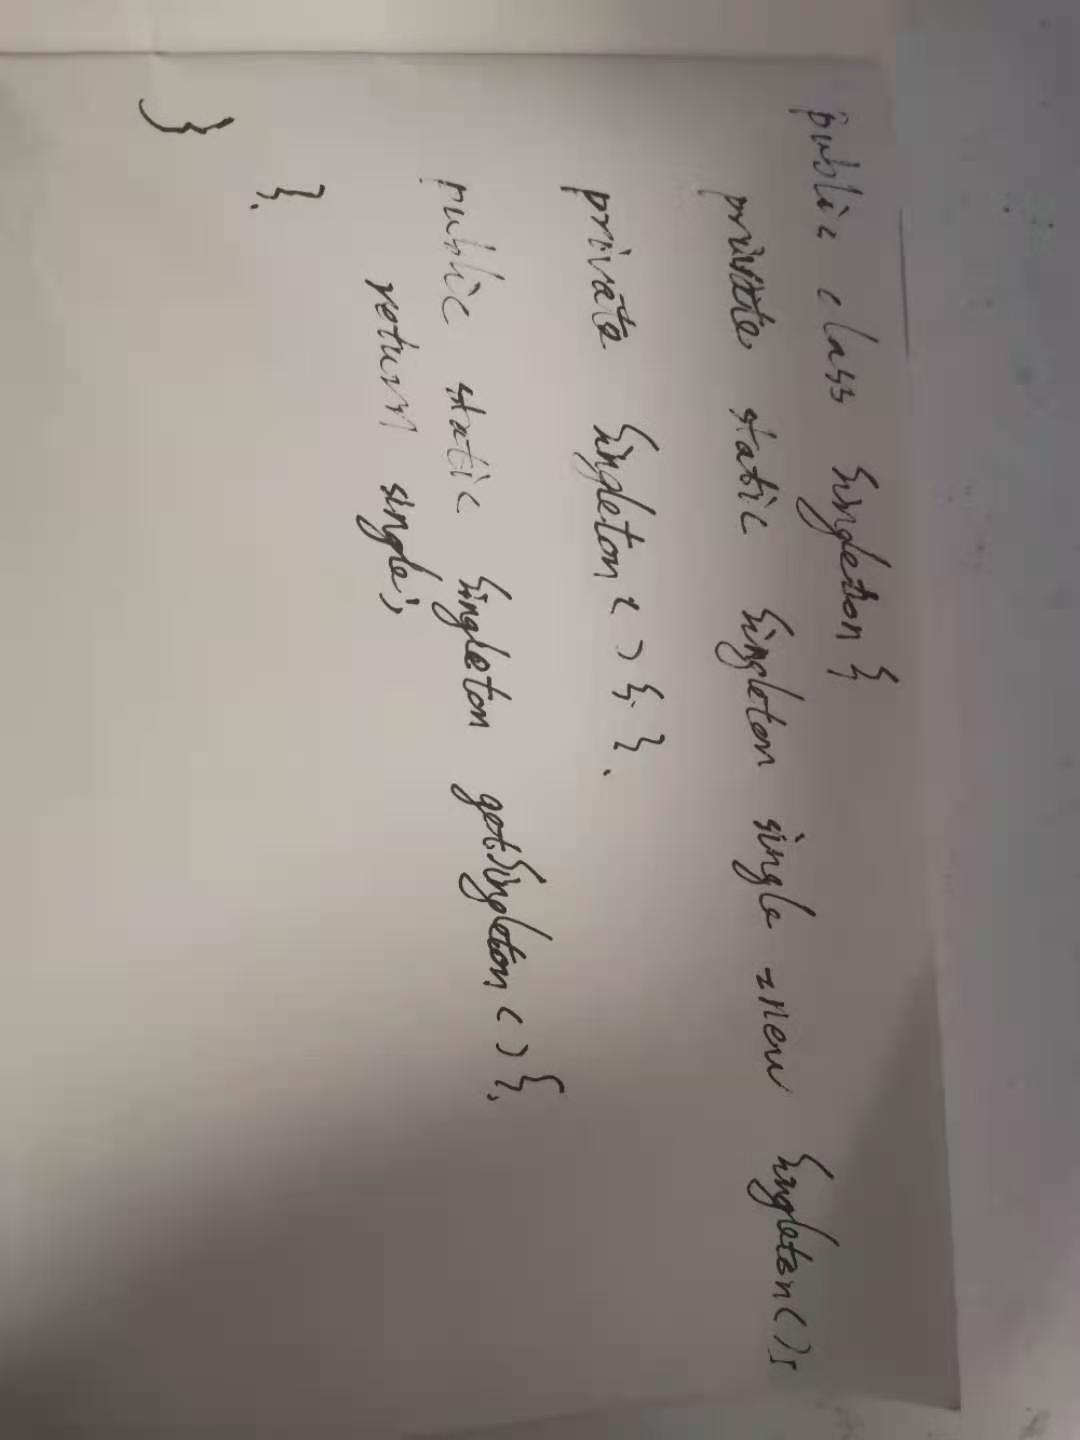 public class Singleton {
private static Singleton single = new Singleton();
private Singleton () { }.
public static Singleton getSingleton () {
return single;
}
}